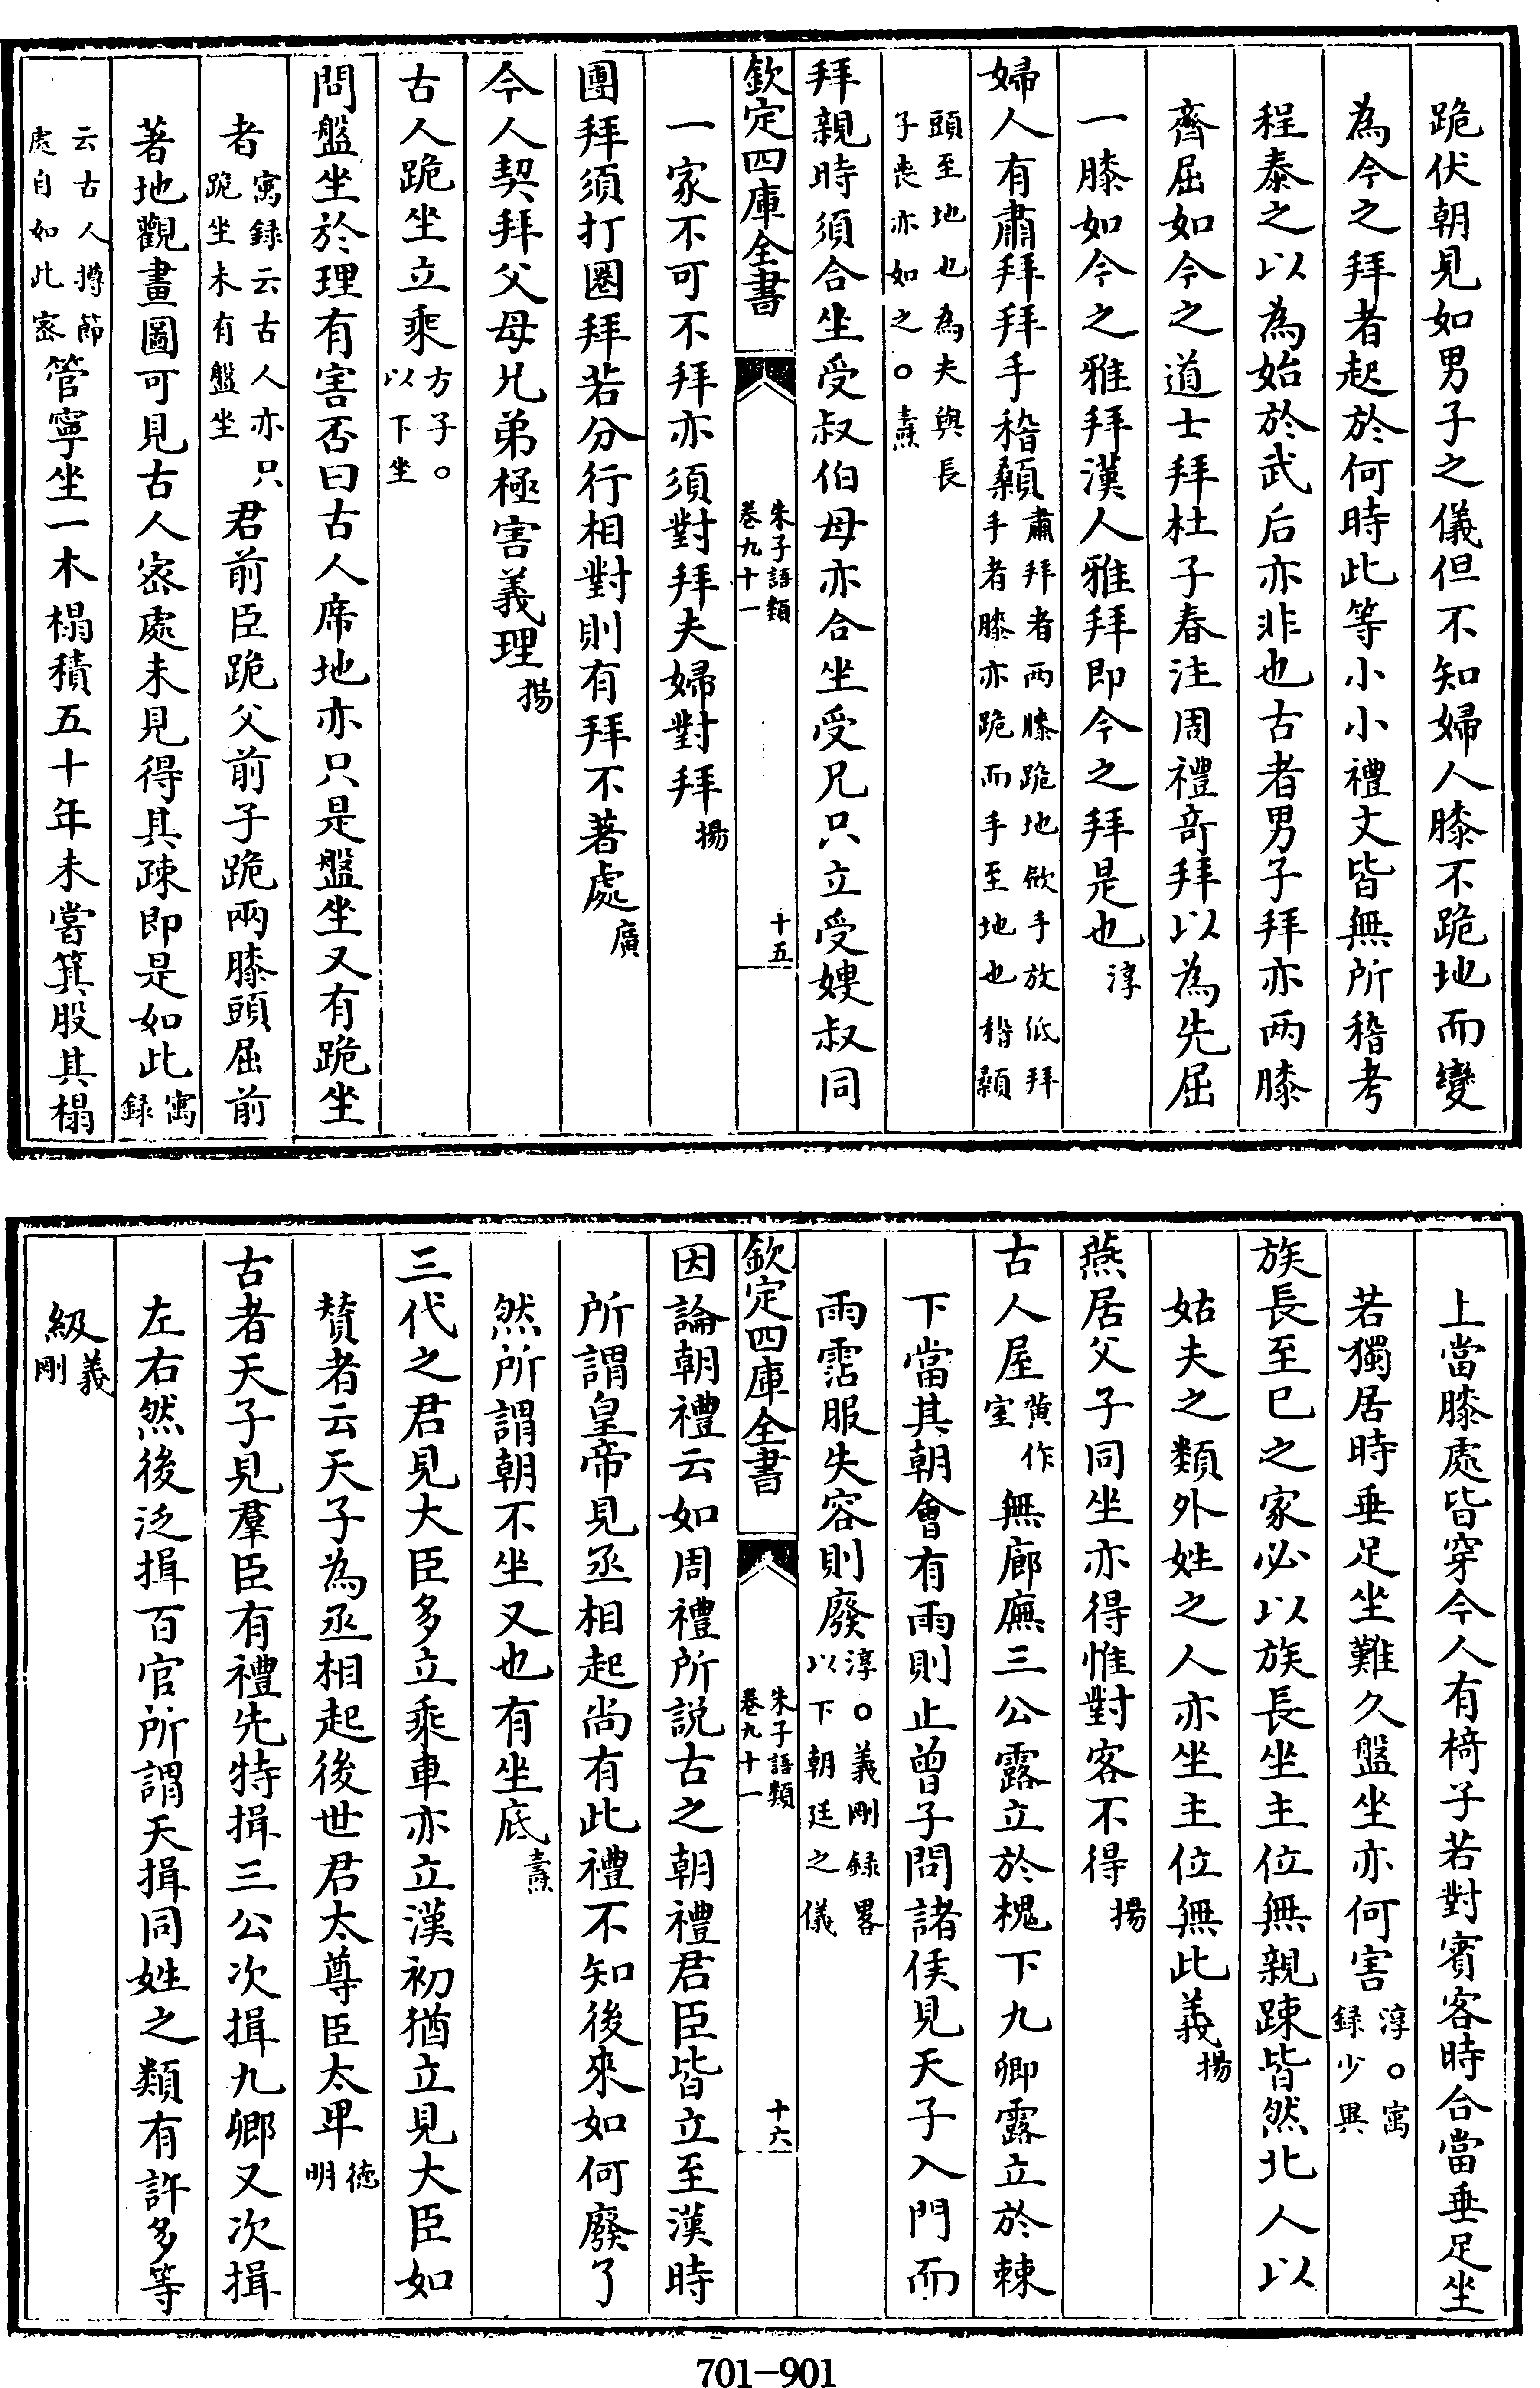 跪伏朝見如男子之儀但不知婦人膝不跪地而變
為今之拜者起於何時此等小小禮文皆無所稽考
程泰之以為始於武后亦非也古者男子拜亦两膝
齊屈如今之道士拜杜子春注周禮奇拜以為先屈
一膝如今之雅拜漢人雅拜即今之拜是也淳
婦人有肅拜拜手稽顙肅拜者两膝跪地斂手放低拜手者膝亦跪而手至地也稽顙
頭至地也為夫與長子喪亦如之○燾
拜親時須合坐受叔伯母亦合坐受兄只立受嫂叔同
欽定四庫全書
朱子語類
卷九十一
十五
一家不可不拜亦須對拜夫婦對拜揚
團拜須打圈拜若分行相對則有拜不著處廣
今人契拜父母兄弟極害義理揚
古人跪坐立乘方子○以下坐
問盤坐於理有害否曰古人席地亦只是盤坐又有跪坐
者㝢録云古人亦只跪坐未有盤坐君前臣跪父前子跪兩膝頭屈前
著地觀畫圖可見古人宻處未見得其疎即是如此㝢録
云古人撙節處自如此宻管寧坐一木榻積五十年未嘗箕股其榻
上當膝處皆穿今人有椅子若對賓客時合當垂足坐
若獨居時垂足坐難久盤坐亦何害淳○㝢録少異
族長至已之家必以族長坐主位無親踈皆然北人以
姑夫之類外姓之人亦坐主位無此義揚
燕居父子同坐亦得惟對客不得揚
古人屋黄作室無廊廡三公露立於槐下九卿露立於棘
下當其朝會有雨則止曾子問諸侯見天子入門而
雨霑服失容則廢淳○義剛録畧以下朝廷之儀
欽定四庫全書
朱子語類
卷九十一
十六
因論朝禮云如周禮所說古之朝禮君臣皆立至漢時
所謂皇帝見丞相起尚有此禮不知後來如何廢了
然所謂朝不坐又也有坐底燾
三代之君見大臣多立乘車亦立漢初猶立見大臣如
賛者云天子為丞相起後世君太尊臣太卑徳明
古者天子見羣臣有禮先特揖三公次揖九卿又次揖
左右然後泛揖百官所謂天揖同姓之類有許多等
級義剛
701-901